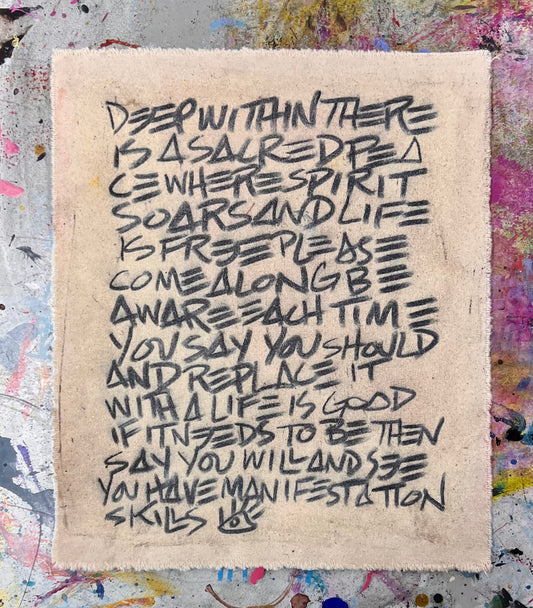 DEEP WITHIN THERE
IS A SACRED PEA
CE WHERE SPIRIT
SOARS AND LIFE
IS FREE PLEASE
COME ALONG BE
AWARE EACH TIME
YOU SAY YOU SHOULD
AND REPLACE IT
WITH A LIFE IS GOOD
IF IT NEEDS TO BE THEN
SAY YOU WILL AND SEE
YOU HAVE MANIFESTATION
SKILLS